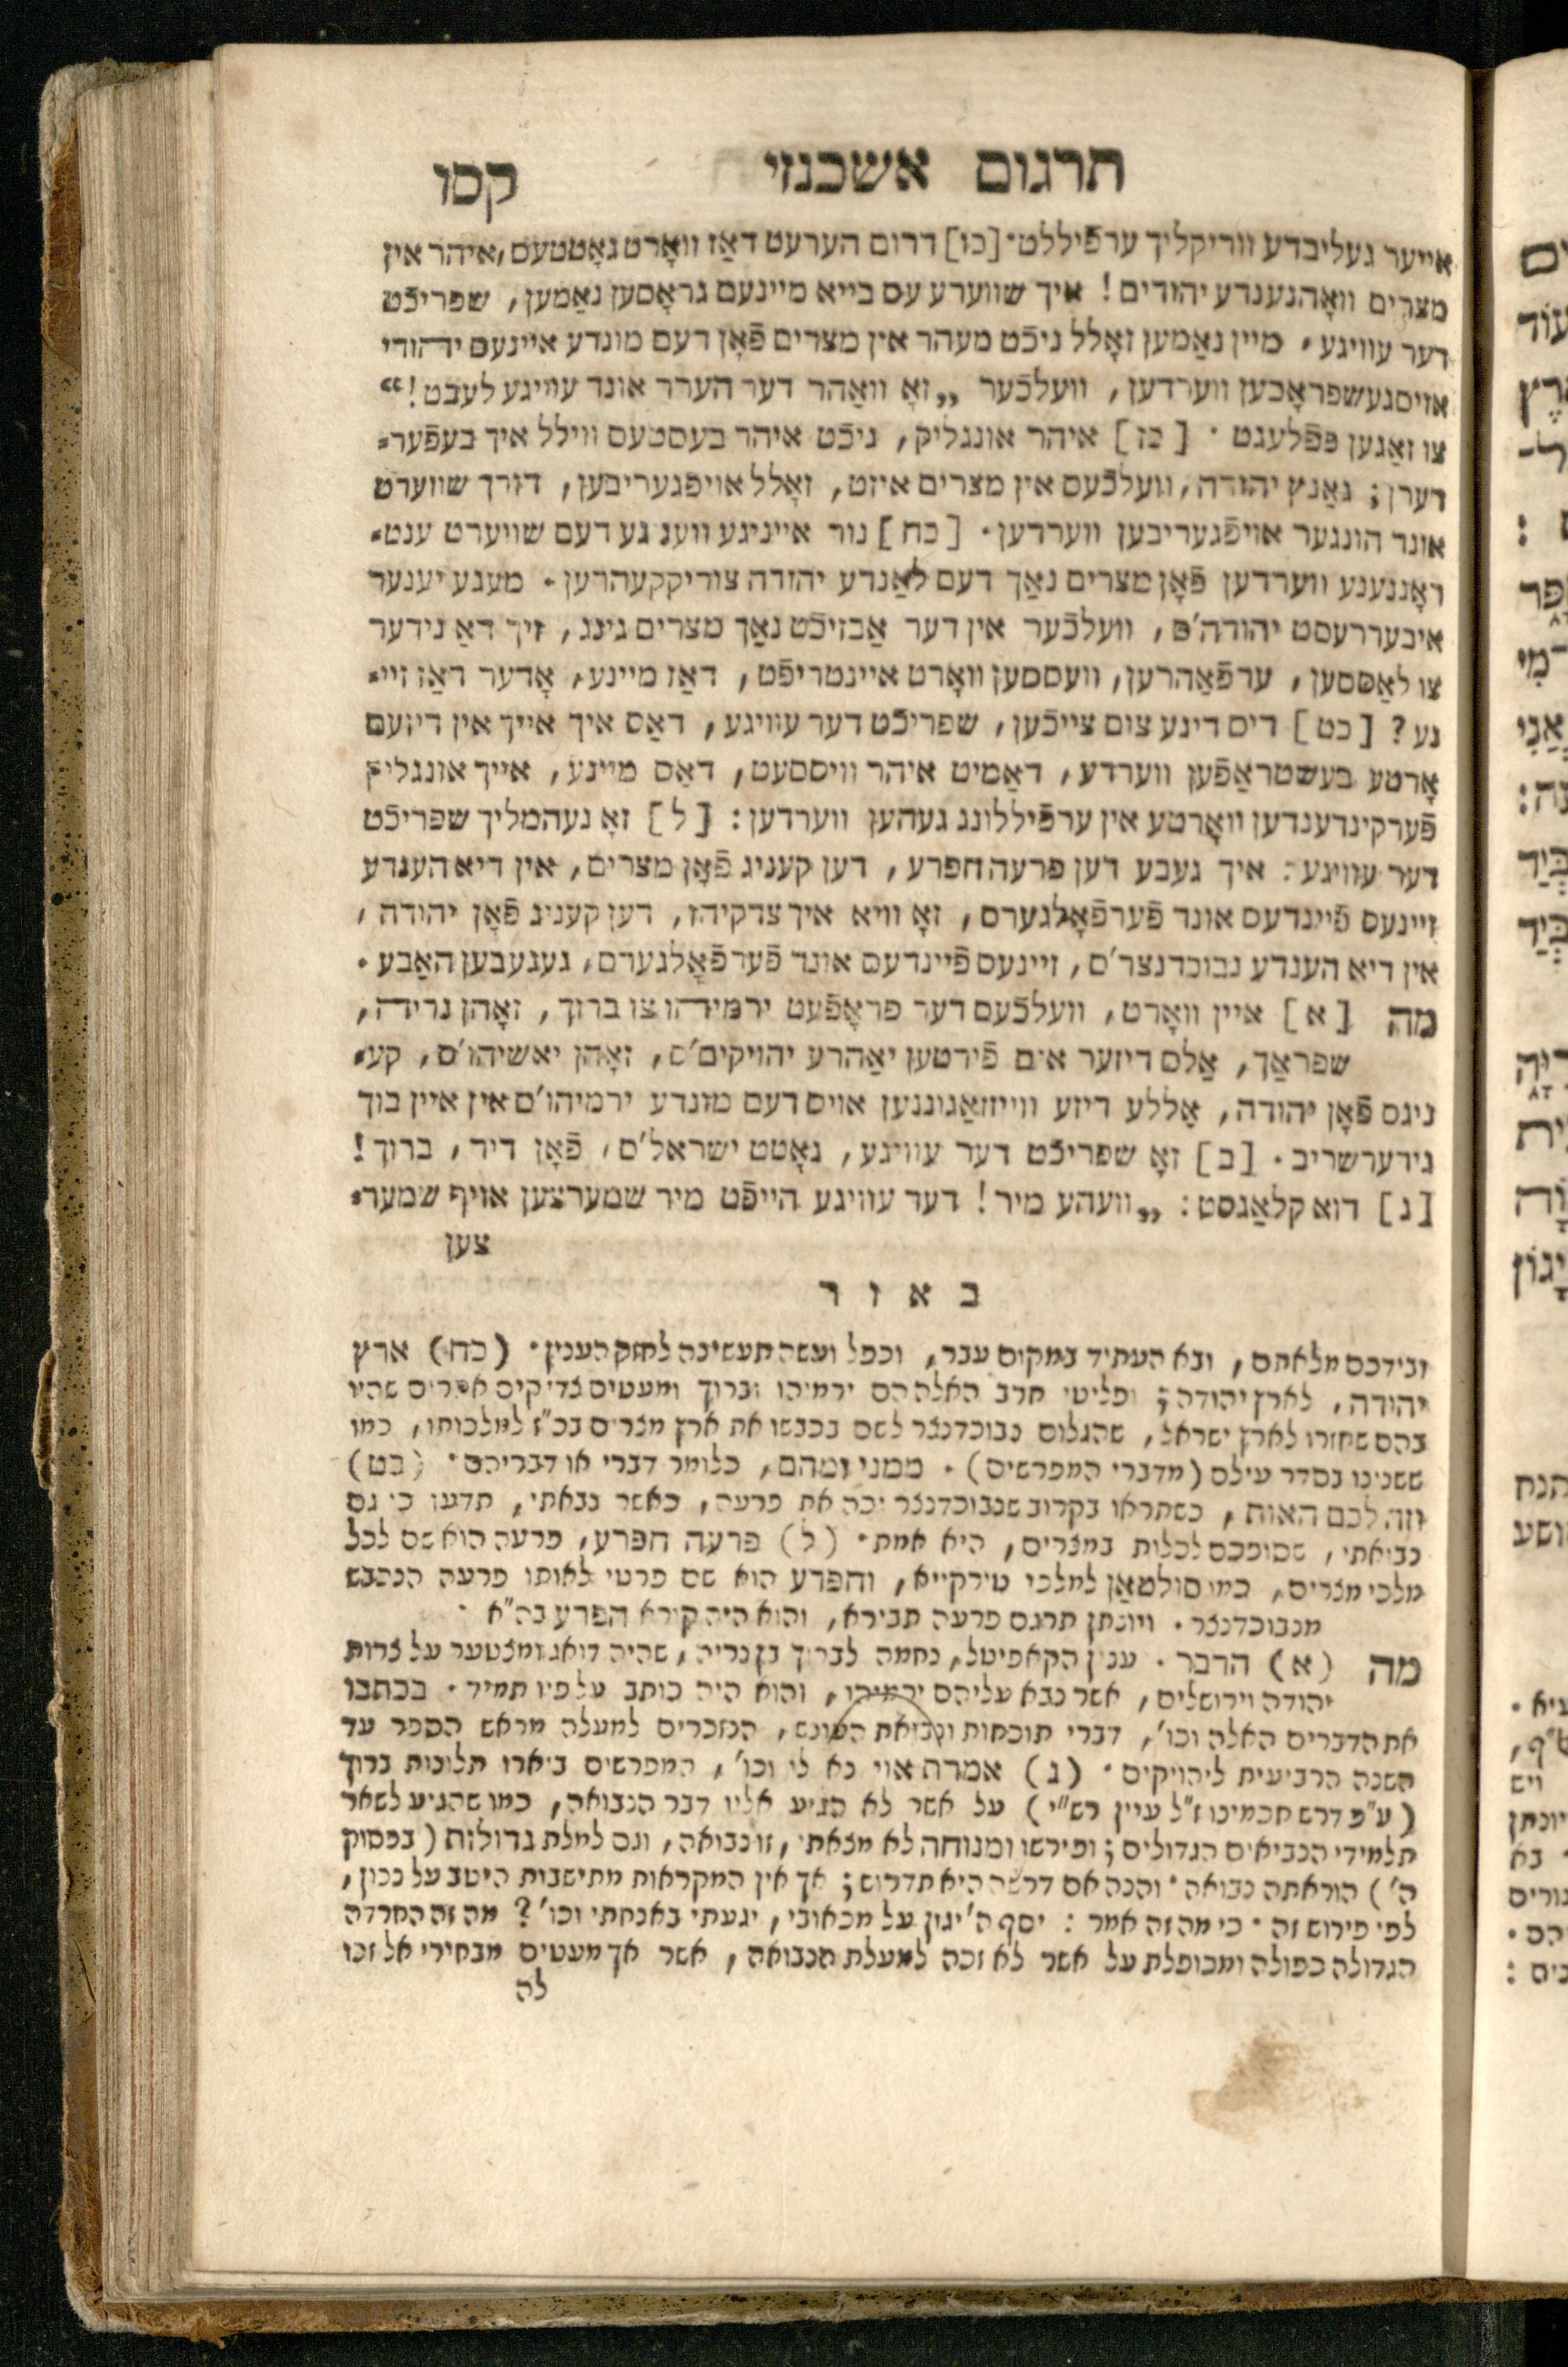 תרגום אשכנזי קסו
אייער געליבדע ווריקליך ערפֿיללט· [כו] דרום הערעט דאַז וואָרט גאָטטעס, איהר אין
מצרים וואָהנענדע יהודים! איך שווערע עס בייא מיינעם גראָסען נאַמען, שפריכֿט
דער עוויגע, מיין נאַמען זאָלל ניכֿט מעהר אין מצרים פֿאָן דעם מונדע איינעס יהודי
אויסגעשפראָכען ווערדען, וועלכֿער „זאָ וואַהר דער הערר אונד עוויגע לעבט!“
צו זאַגען פפֿלעגט · [כז] איהר אונגליק, ניכֿט איהר בעסטעס ווילל איך בעפֿער־
דערן; גאַנץ יהודה, וועלכֿעס אין מצרים איזט, זאָלל אויפֿגעריבען, דורך שווערט
אונד הונגער אויפֿגעריבען ווערדען· [כח] נור אייניגע ווענגע דעם שווערט ענט־
ראָננענע ווערדען פֿאָן מצרים נאַך דעם לאַנדע יהודה צוריקקעהרען· מענע יענער
איבעררעסט יהודה'ס, וועלכֿער אין דער אַבזיכֿט נאַך מצרים גינג, זיך דאַ נידער
צו לאַססען, ערפֿאַהרען, וועססען וואָרט איינטריפֿט, דאַז מיינע, אָדער דאַז זיי־
נע? [כט] דיס דינע צום צייכֿען, שפריכֿט דער עוויגע, דאַס איך אייך אין דיזעם
אָרטע בעשטראַפֿען ווערדע, דאַמיט איהר וויססעט, דאַס מיינע, אייך אונגליק
פֿערקינדענדען וואָרטע אין ערפֿיללונג געהען ווערדען: [ל] זאָ נעהמליך שפריכֿט
דער עוויגע: איך געבע דען פרעה חפרע, דען קעניג פֿאָן מצרים, אין דיא הענדע
זיינעס פֿיינדעס אונד פֿערפֿאָלגערס, זאָ וויא איך צדקיהו, דען קעניג פֿאָן יהודה,
אין דיא הענדע נבוכדנצר'ס, זיינעס פֿיינדעס אונד פֿערפֿאָלגערס, געגעבען האַבע·
מה [א] איין וואָרט, וועלכֿעס דער פראָפֿעט ירמיהו צו ברוך, זאָהן נריה,
שפראַך, אַלס דיזער אים פֿירטען יאַהרע יהויקים'ס, זאָהן יאשיהו'ס, קע־
ניגס פֿאָן יהודה, אַללע דיזע ווייזזאַגונגען אויס דעם מונדע ירמיהו'ס אין איין בוך
נידערשריב· [ב] זאָ שפריכֿט דער עוויגע, גאָטט ישראל'ס, פֿאָן דיר, ברוך!
[ג] דוא קלאַגסט: „וועהע מיר! דער עוויגע הייפֿט מיר שמערצען אויף שמער־
צען
באור
ובידכם מלאתם, ובא העתיד במקום עבר, וכפל ועשה תעשינה לחזק הענין· (כח) ארץ
יהודה, לארץ יהודה; ופליטי חרב האלה הם ירמיהו וברוך ומעטים צדיקים אחרים שהיו
בהם שחזרו לארץ ישראל, שהגלום נבוכדנצר לשם בכבשו את ארץ מצרים בכ"ז למלכותו, כמו
ששנינו בסדר עולם (מדברי המפרשים)· ממני ומהם, כלומר דברי או דבריהם· (כט)
וזה לכם האות, כשתראו בקרוב שנבוכדנצר יכה את פרעה, כאשר נבאתי, תדעו כי גם
נבואתי, שסופכם לכלות במצרים, היא אמת· (ל) פרעה חפרע, פרעה הוא שם לכל
מלכי מצרים, כמו סולטאַן למלכי טירקייא, וחפרע הוא שם פרטי לאותו פרעה הנכבש
מנבוכדנצר· ויונתן תרגם פרעה תבירא, והוא היה קורא הפרע בה"א ·
מה (א) הדבר· ענין הקאפיטל, נחמה לברוך בן נריה, שהיה דואג ומצטער על צרות
יהודה וירושלים, אשר נבא עליהם ירמיהו, והוא היה כותב על פיו תמיד· בכתבו
את הדברים האלה וכו', דברי תוכחות ונבואת העונש, הנזכרים למעלה מראש הספר עד
השנה הרביעית ליהויקים· (ג) אמרת אוי נא לי וכו', המפרשים ביארו תלונות ברוך
(ע"פ דרש חכמינו ז"ל עיין רש"י) על אשר לא הגיע אליו דבר הנבואה, כמו שהגיע לשאר
תלמידי הנביאים הגדולים; ופירשו ומנוחה לא מצאתי, זו נבואה, וגם למלת גדולות (בפסוק
ה') הוראתה נבואה· והנה אם דרשה היא תדרוש; אך אין המקראות מתישבות היטב על נכון,
לפי פירוש זה· כי מה זה אמר: יסף ה' יגון על מכאובי, יגעתי באנחתי וכו'? מה זה החרדה
הגדולה כפולה ומכופלת על אשר לא זכה למעלת הנבואה, אשר אך מעטים מבחירי אל זכו
לה